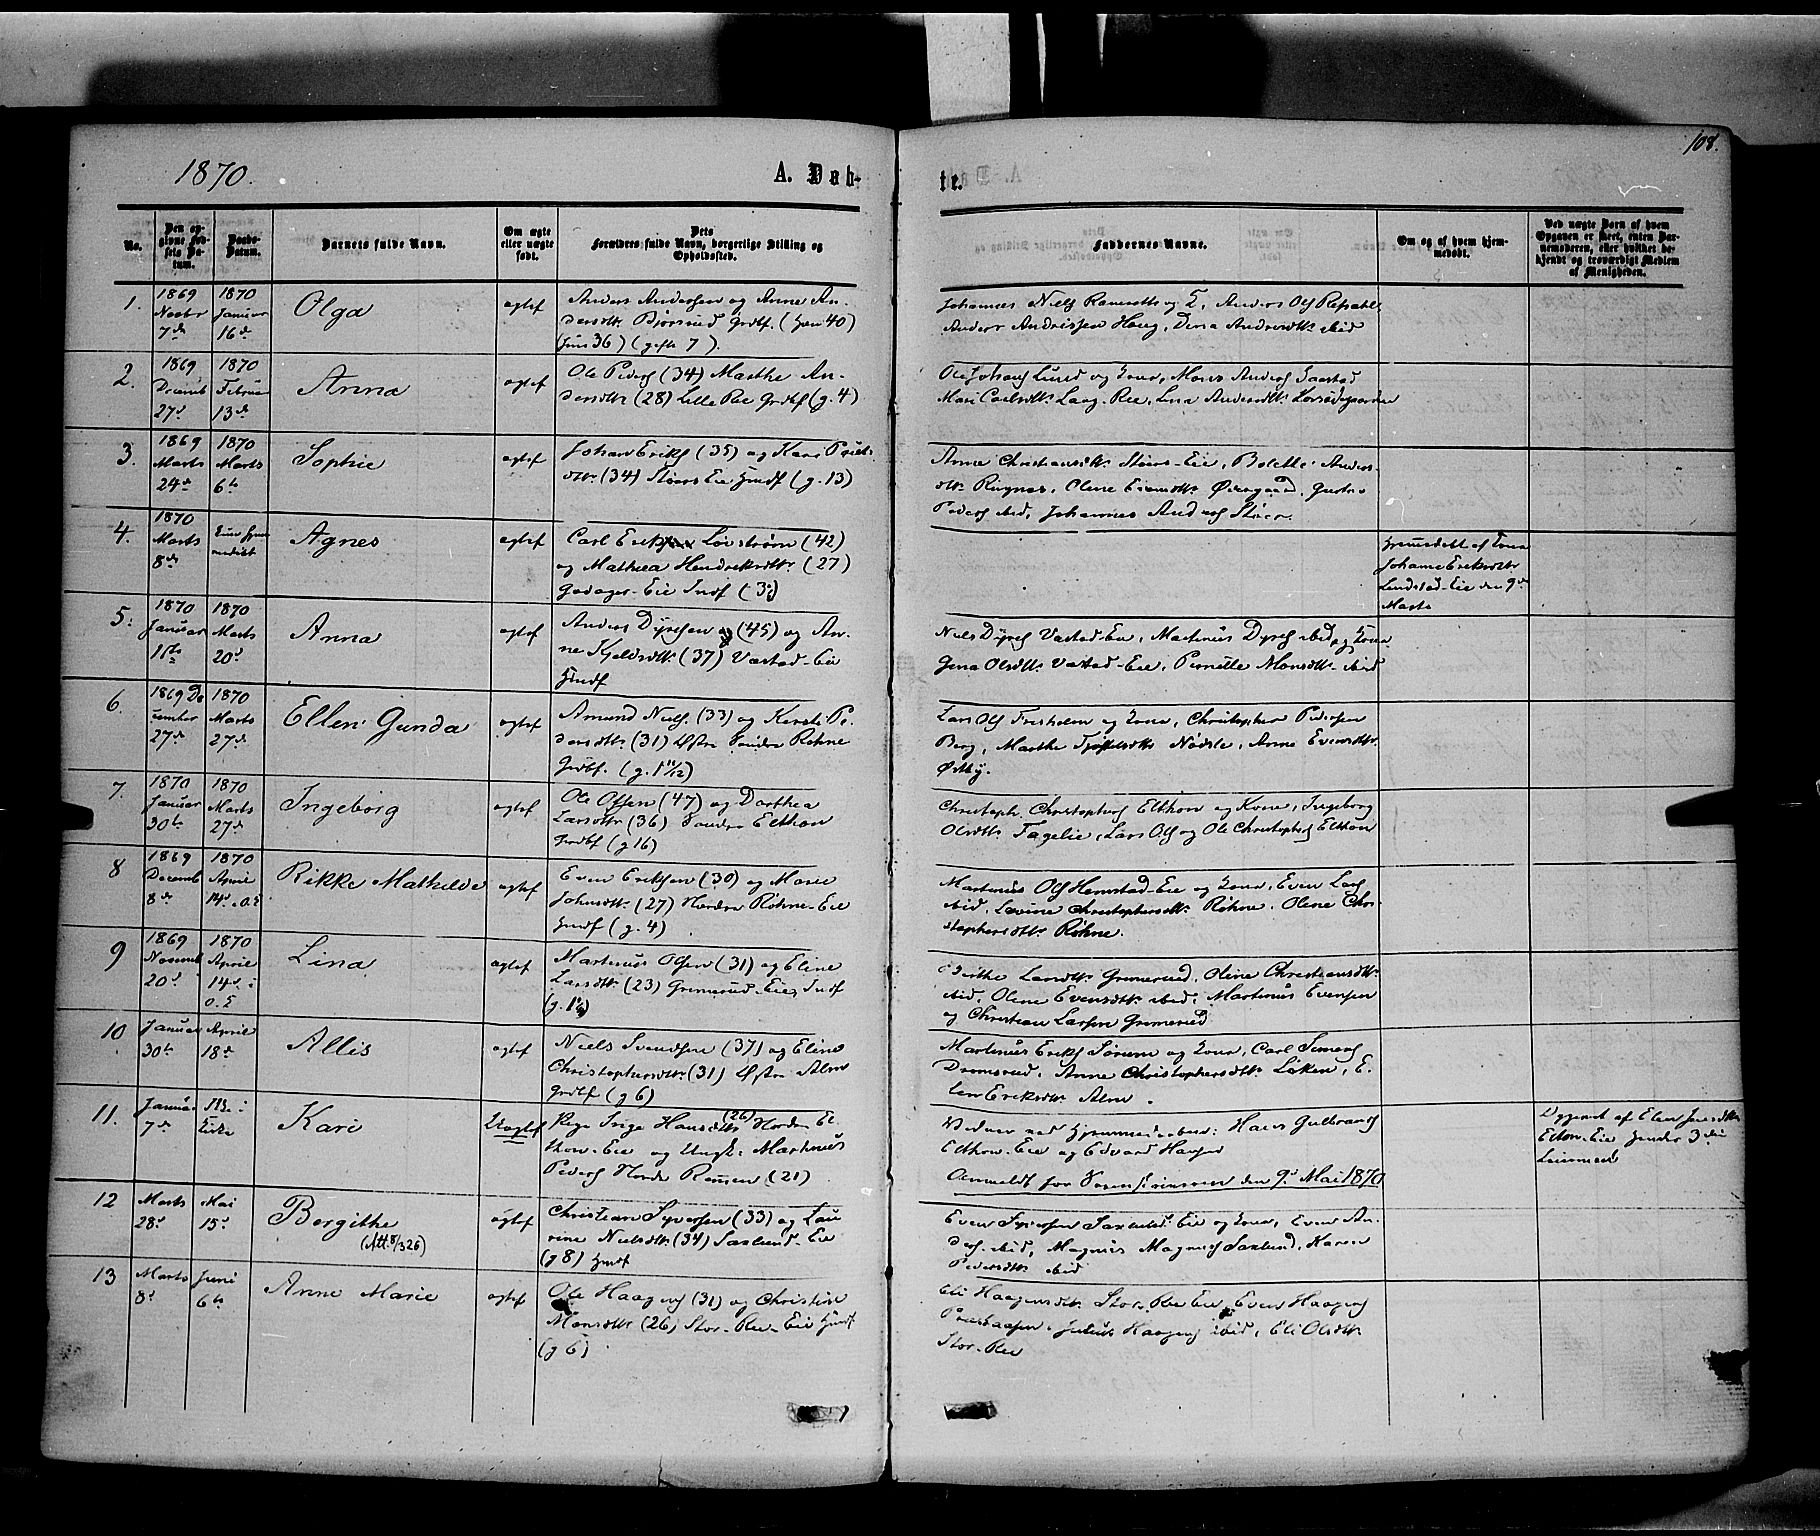 1870.
A. Døb-
te.
108.
No.
Den op-
givne Fød-
sels Da-
tum.
Daabs-
Datum.
Barnets fulde Navn.
Om ægte
eller uægte
født.
Dets
Forældres fulde Navn, borgerlige Stilling og
Opholdssted.
Faddernes Navne.
Om og af hvem hjem-
medøbt.
Ved uægte Børn af hvem
Opgaven er skeet, enten Bar-
nemoderen, eller hvilket be-
kjendt og troværdigt Medlem
af Menigheden.
1.
1869
Novbr
7de
1870
Januar
16de
Olga
ægtef
Anders Andersen og Anne An-
dersdtr. Bjørsrud Grdbf. (ham 40)
(hun 36) (gifte 7).
Johannes Niels
Anders Andersen Haug, Dina Andersdtr. ibid
2.
1869
Decemb
27d
1870
Februar
13de
Anna
ægtef
Ole Peders (34) Marthe An-
dersdtr (28) Lille Ree Grdbf (g. 4)
Ole Johans Lund og Kone, Mons Anders
Mari Carlsdtr. Laag-Ree, Lina Andersdtr.
3.
1869
Marts
24de
1870
Marts
6te
Sophie
ægtef
Johan Eriks (35) og Kari
dtr. (34) Støers Eie Huusf (g. 13)
Anne Christiansdtr. Støers-Eie, Bolette Anders-
dtr. Ringnes, Olene Evensdtr. Gustav
Peders ibid, Johannes Anders Støer.
4.
1870
Marts
8de
Agnes
ægtef
Carl Eriksen Løvstrøm (42)
og Mathea Hendriksdtr. (27)
Godager-Eie Indf (3)
Hjemmedøbt af Kone
Johanne Eriksdtr
Lundstad-Eie den 9de
Marts
5.
1870
Januar
11te
1870
Marts
20d
Anna
ægtef
Anders Dyresen (45) og An-
ne Kjeldsdtr. (37) Vastad-Eie
Huusf
Niels Dyres Vastad-Eie, Martinus Dyres ibid og Kone
Gina Olsdtr. Vastad-Eie, Pernille Monsdtr. ibid
6.
1869 De
cember
27de
1870
Marts
27de
Ellen Gunda
ægtef
Amund Niels (33) og Kersti Pe-
dersdtr. (31) Østre Søndre Røhne
Grdbf. (g. 1 11/12)
Lars Ols og Kone, Christopher Pedersen
Berg, Marthe Nødsle, Anne Evensdtr.
Østby.
7.
1870
Januar
30te
1870
Marts
27de
Ingeborg
ægtef
Ole Olsen (47) og Dorthea
Larsdtr (36) Søndre Elthon
Grdbf (g 16)
Christoph. Christophers Elthon og Kone, Ingeborg
Olsdtr. Fagelie, Lars Ols og Ole Christophers Elthon
8
1869
Decemb
8de
1870
April
14d
Rikke Mathilde
ægtef
Even Eriksen (30) og Marie
Johnsdtr. (27) Nordre Røhne-Eie
Huusf (g. 4)
Martinus Ols Hemstad-Eie og Kone, Even Lars
ibid, Lovine Christophersdtr. Røhne, Olene Chri-
stophersdtr. Røhne.
9
1869
Novemb
20d
1870
April
14d i
o. S
Lina
ægtef
Martinus Olsen (31) og Eline
Larsdtr. (23) Grimerud-Eie, Indf
(g. 1½)
Berthe Larsdtr. Grimerud, Oline Christiansdtr.
ibid, Olene Evensdtr. ibid, Martinus Evensen
og Christian Larsen Grimerud
10
Januar
30te
April
18de
Allis
ægtef
Niels Svendsen (37) og Eline
Christophersdtr. (31) Østre Alm
Grdbf (g 6)
Martinus Eriks Sørum og Kone, Carl Simens
Dromsrud, Anne Christophersdtr. Løken, E-
len Eriksdtr. Alm.
11.
Januar
7de
Kirke
Kari
Uægtef
Pige Inge Hansdtr. (26) Nordre El-
thon-Eie og Ungk. Martinus
Peders Nordre Rømen (21)
Vidner ved Hjemmedaaben: Hans Gulbrands
Elthon-Eie og Edvard Hansen
Anmeldt for den 9d Mai 1870
Opgivet af Elen
Elthon-Eie hendes 3die
Leiermaal
12
Marts
28d
Mai
15d
Bergithe
(Att. 8/326)
ægtef
Christian Syversen (33) og Lau-
rine Nielsdtr. (34) Saxlund-Eie
(g 8) Huusf
Even Syversen Saxlund-Eie og Kone, Even An-
ders ibid, Magnus Magnus Saxlund, Karen
Pedersdtr. ibid
13
Marts
8d
Juni
6te
Anne Marie
ægtef
Ole Haagens (31) og Christine
Monsdtr. (26) Stor-Ree-Eie Huusf
(g 6)
Eli Haagensdtr. Stor-Ree Eie, Even Haagens
Julius Haagens ibid, Eli Olsdtr.
Stor-Ree